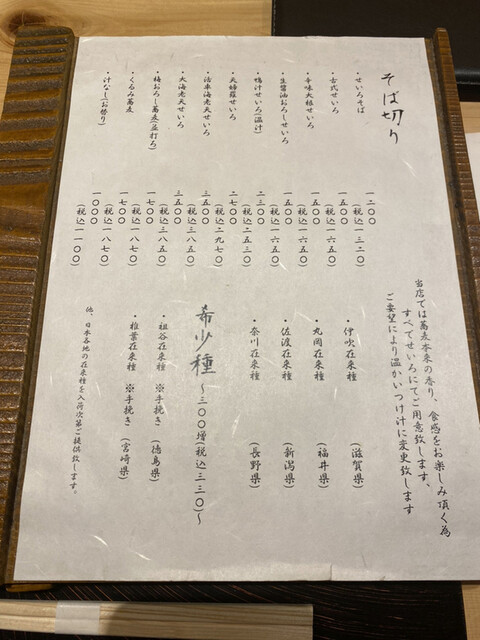 そば切り
・せいろそば 一二〇〇
(税込一三二〇)
・古式せいろ 一五〇〇
(税込一六五〇)
・辛味大根せいろ 一五〇〇
(税込一六五〇)
・生醤油おろしせいろ 一五〇〇
(税込一六五〇)
・鴨汁せいろ(温汁) 二三〇〇
(税込二五三〇)
・天婦羅せいろ 二七〇〇
(税込二九七〇)
・活車海老天せいろ 三五〇〇
(税込三八五〇)
・大海老天せいろ 三五〇〇
(税込三八五〇)
・梅おろし蕎麦(並打ち) 一七〇〇
(税込一八七〇)
・くるみ蕎麦 一七〇〇
(税込一八七〇)
・汁なし(お替り) 一〇〇〇
(税込一一〇〇)
当店では蕎麦本来の香り、食感をお楽しみ頂く為
すべてせいろにてご用意致します、
ご要望により温かいつけ汁に変更致します
・伊吹在来種 (滋賀県)
・丸岡在来種 (福井県)
・佐渡在来種 (新潟県)
・奈川在来種 (長野県)
希少種 〜三〇〇増(税込三三〇)〜
・祖谷在来種 ※手挽き (徳島県)
・椎葉在来種 ※手挽き (宮崎県)
他、日本各地の在来種を入荷次第ご提供致します。